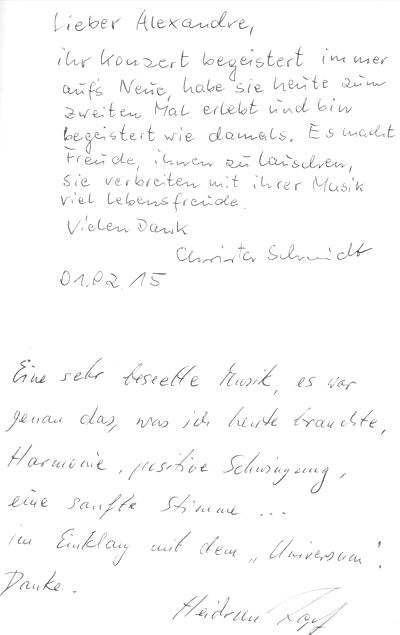 Lieber Alexandre,
ihr Konzert begeistert immer
auf's Neue, habe sie heute zum
zweiten Mal erlebt und bin
begeistert wie damals. Es macht
Freude, ihnen zu lauschen,
sie verbreiten mit ihrer Musik
viel Lebensfreude.
Vielen Dank
Christa Schmidt
01.02.15
Eine sehr beseelte Musik, es war
genau das, was ich heute brauchte,
Harmonie, positive Schwingung,
eine sanfte Stimme ...
im Einklang mit dem „Universum".
Danke.
Heidrun